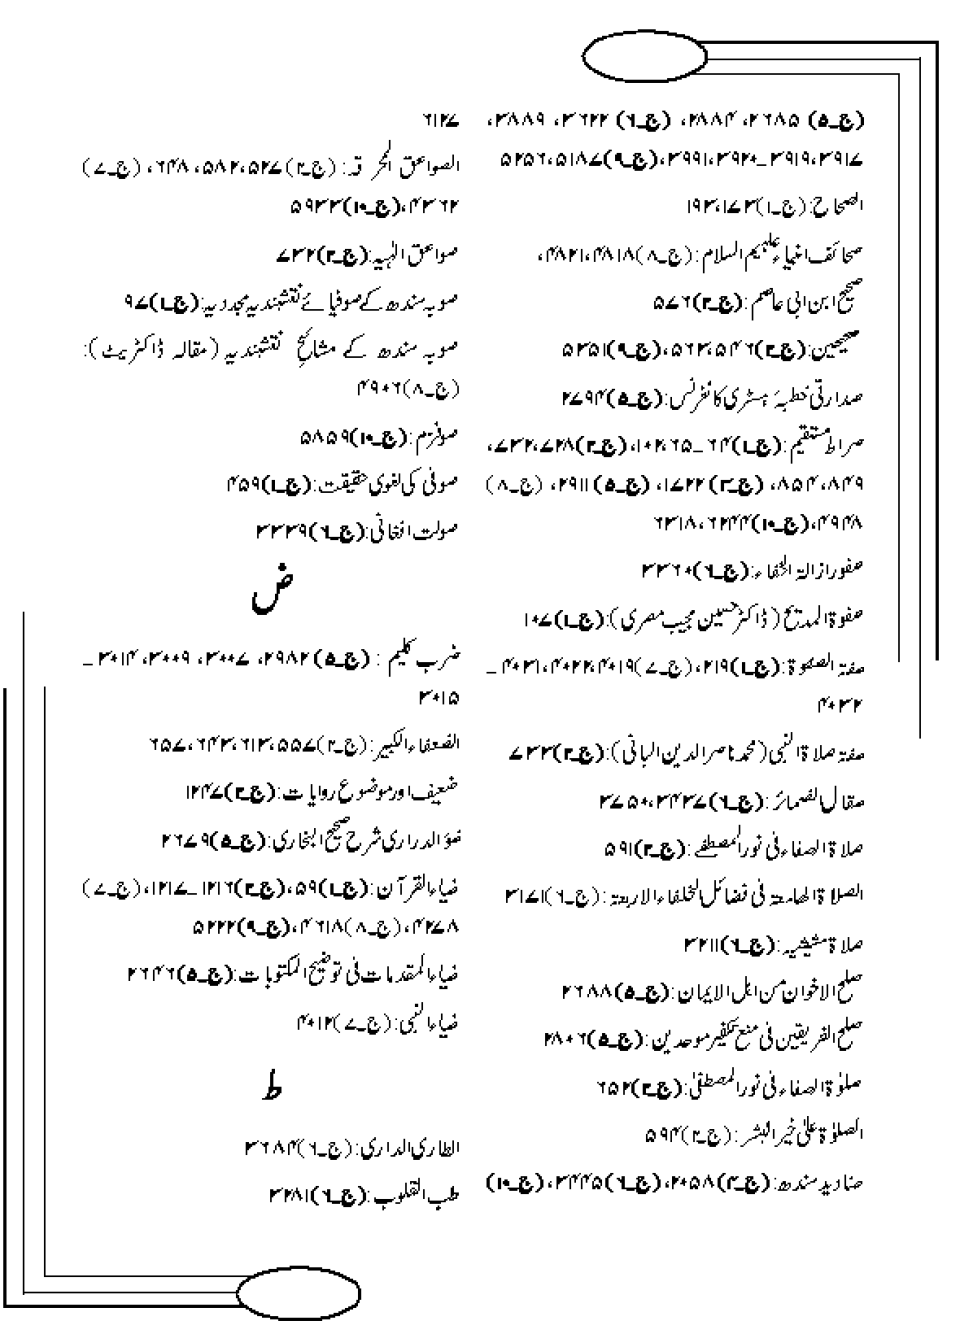 (ج۔۵) ۲۶۸۵، ۲۸۸۴، (ج۔۶) ۳۶۲۲، ۳۸۸۹،
۳۹۱۷، ۳۹۱۹۔۳۹۲۰، ۳۹۹۱، (ج۔۹)۵۱۸۷، ۵۲۵۶
الصحاح: (ج۔۱) ۱۷۳، ۱۹۳
صحائف انبیاء علیہم السلام: (ج۔۸) ۴۸۱۸، ۴۸۲۱،
صحیح ابن ابی عاصم: (ج۔۲) ۵۷۶
صحیحین: (ج۔۲) ۵۴۶، ۵۶۳، (ج۔۹) ۵۳۵۱
صدارتی خطبۂ ہسٹری کانفرنس: (ج۔۵) ۲۷۹۴
صراط مستقیم: (ج۔۱) ۶۴۔۶۵، ۱۰۲، (ج۔۲) ۷۲۸، ۷۳۲،
۸۴۹، ۸۵۴، (ج۔۳) ۱۷۲۲، (ج۔۵) ۲۹۱۱، (ج۔۸)
۴۹۴۸، (ج۔۱۰) ۶۲۴۴، ۶۳۱۸
صفور ازالۃ الخفاء: (ج۔۶) ۳۳۶۰
صفوۃ المدیح (ڈاکٹر حسین مجیب مصری): (ج۔۱) ۱۰۷
صفۃ الصفوۃ: (ج۔۱) ۲۱۹، (ج۔۷) ۴۰۱۹، ۴۰۲۲، ۴۰۳۱۔
۴۰۳۲
صفۃ صلاۃ النبی (محمد ناصر الدین البانی): (ج۔۲) ۷۳۳
صقال الضمائر: (ج۔۶) ۳۴۳۷، ۳۷۵۰
صلاۃ الصفاء فی نور المصطفے: (ج۔۲) ۵۹۱
الصلاۃ الجامعۃ فی فضائل الخلفاء الاربعۃ: (ج۔۶) ۳۱۷۱
صلاۃ مشیشیہ: (ج۔۶) ۳۲۱۱
صلح الاخوان من اہل الایمان: (ج۔۵) ۲۶۸۸
صلح الفریقین فی منع تکفیر موحدین: (ج۔۵) ۲۸۰۶
صلوٰۃ الصفاء فی نور المصطفیٰ: (ج۔۲) ۶۵۲
الصلوٰۃ علیٰ خیر البشر: (ج۔۲) ۵۹۴
صنادید سندھ: (ج۔۳) ۲۰۵۸، (ج۔۶) ۳۴۴۵، (ج۔۱۰)
۶۱۲۷
الصواعق المحرقۃ: (ج۔۲) ۵۲۷، ۵۸۲، ۶۴۸، (ج۔۷)
۴۳۶۲، (ج۔۱۰) ۵۹۳۳
صواعق الٰہیہ: (ج۔۲) ۷۳۲
صوبہ سندھ کے صوفیائے نقشبندیہ مجددیہ: (ج۔۱) ۹۷
صوبہ سندھ کے مشائخ نقشبندیہ (مقالہ ڈاکٹریٹ):
(ج۔۸) ۴۹۰۶
صوفزم: (ج۔۱۰) ۵۸۵۹
صوفی کی لغوی حقیقت: (ج۔۱) ۴۵۹
صولت افغانی: (ج۔۶) ۳۳۳۹
ض
ضرب کلیم: (ج۔۵) ۲۹۸۲، ۳۰۰۷، ۳۰۰۹، ۳۰۱۴۔
۳۰۱۵
الضعفاء الکبیر: (ج۔۲) ۵۵۷، ۶۱۳، ۶۴۳، ۶۵۷
ضعیف اور موضوع روایات: (ج۔۲) ۱۲۴۷
ضوٗ الدراری شرح صحیح البخاری: (ج۔۵) ۲۶۷۹
ضیاء القرآن: (ج۔۱) ۵۹، (ج۔۲) ۱۲۱۶۔۱۲۱۷، (ج۔۷)
۴۲۷۸، (ج۔۸) ۴۶۱۸، (ج۔۹) ۵۲۲۲
ضیاء المقدمات فی توضیح المکتوبات: (ج۔۵) ۲۶۴۶
ضیاء النبی: (ج۔۷) ۴۰۱۲
ط
الطاری الداری: (ج۔۶) ۳۶۸۴
طب القلوب: (ج۔۶) ۳۲۸۱